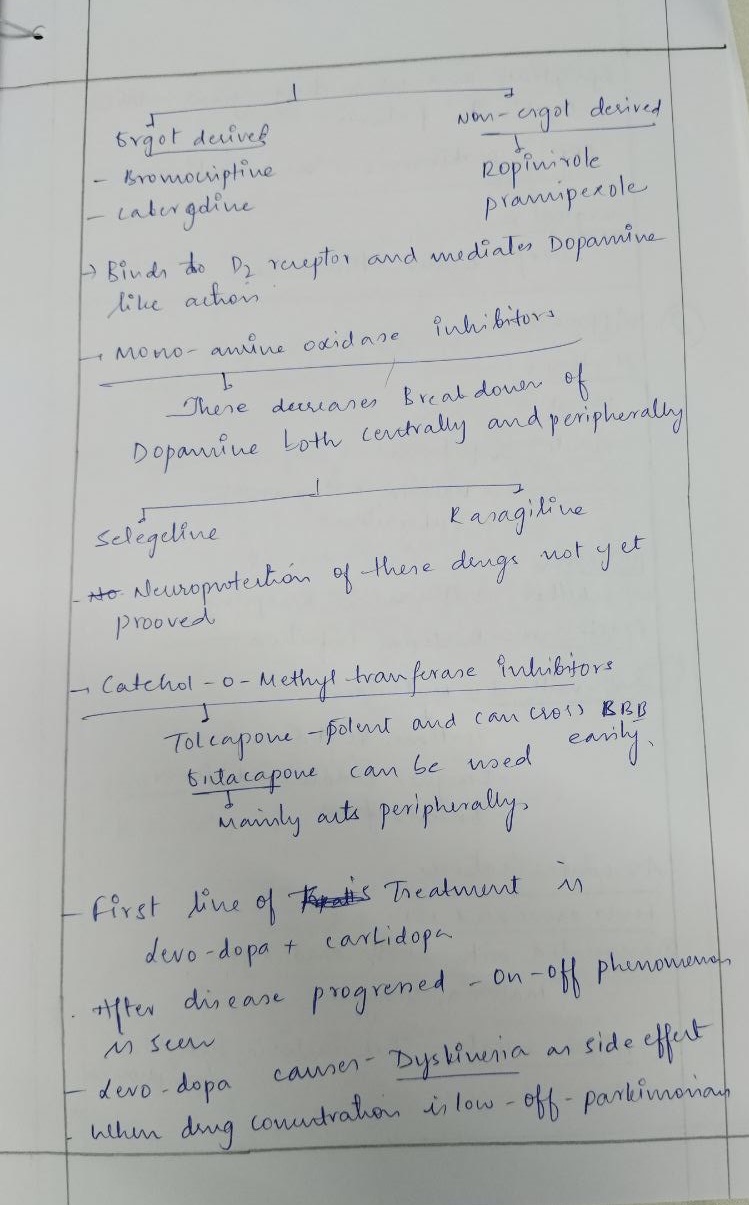 Ergot derived
Non-ergot derived
- Bromocriptine
Ropinirole
- Cabergoline
pramipexole
→ Binds to D2 receptor and mediates Dopamine
like action
→ Mono-amine oxidase inhibitors
These decreases Breakdown of
Dopamine both centrally and peripherally
Selegeline
Rasagiline
- Neuroprotection of these drugs not yet
prooved
→ Catchol-o-Methyl tranferase inhibitors
Tolcapone - potent and can cross BBB
easily,
Entacapone can be used
Mainly acts peripherally,
- First line of Treatment is
Levo-dopa + carbidopa
. After disease progressed - on-off phenomenon
is seen
- Levo-dopa causes - Dyskinesia as side effect
. When drug concentration is low - off - parkinsonian